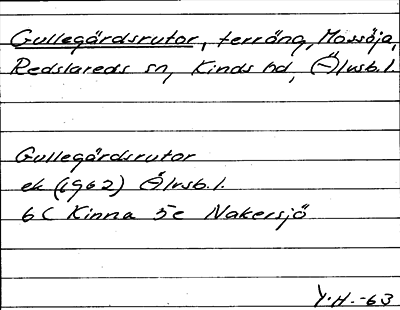 Gullegårdsrutor, terräng, Mossöja,
Redslareds sn, Kinds hd, Älvsb. l.
Gullegårdsrutor
ek (1962) Älvsb. l.
6C Kinna 5e Nakersjö
Y.H. -63